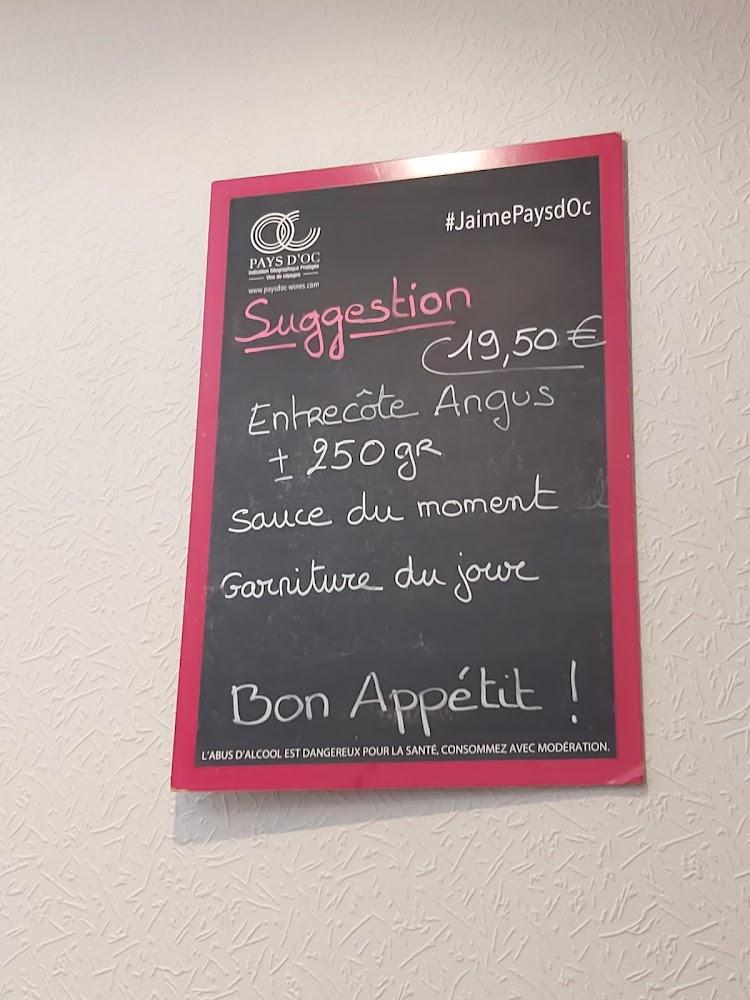 #JaimePaysdOc
PAYS D'OC
Indication Géographique Protégée
Vins de cépages
www.paysdoc-wines.com
Suggestion
19,50 €
Entrecôte Angus
± 250 gr
sauce du moment
Garniture du jour
Bon Appétit !
L'ABUS D'ALCOOL EST DANGEREUX POUR LA SANTÉ, CONSOMMEZ AVEC MODÉRATION.